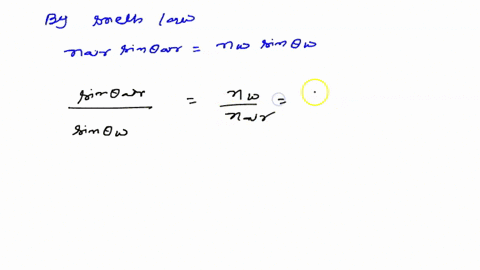 By snells law
nair sinθair = nw sinθw
sinθair / sinθw = nw / nair =